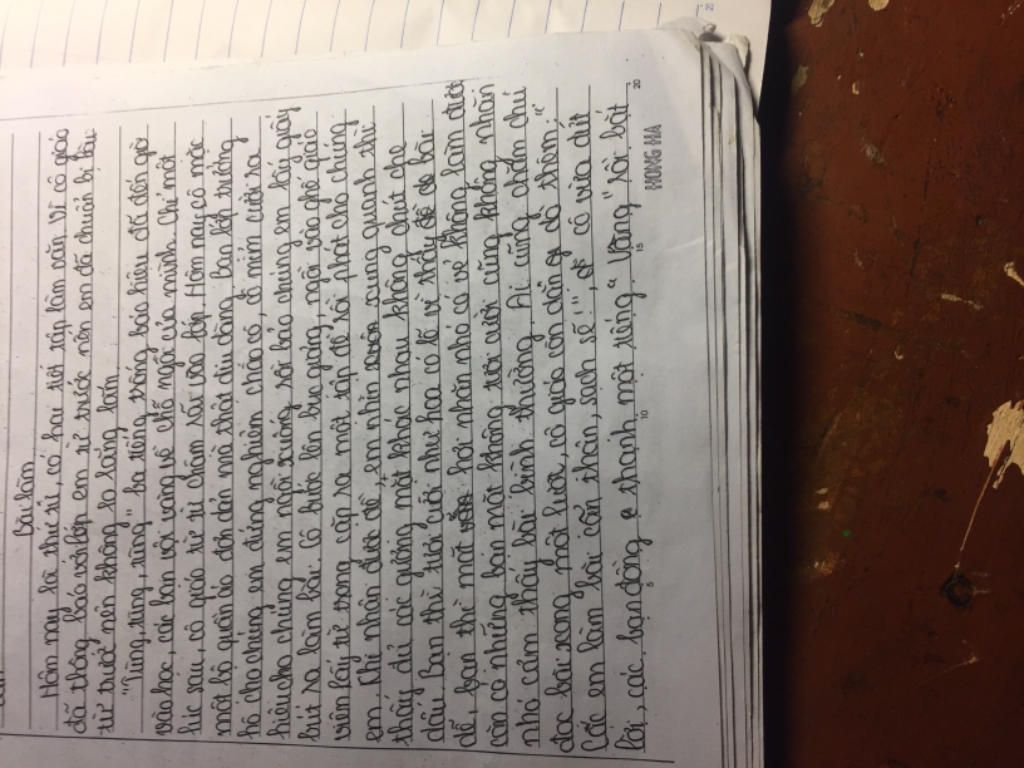 Bài làm
Hôm nay là thứ tư, có hai tiết tập làm văn. Vì cô giáo
đã thông báo với lớp em từ trước nên em đã chuẩn bị bài
từ trước nên không lo lắng lắm.
"Tùng, tùng, tùng" ba tiếng trống báo hiệu đã đến giờ
vào học, các bạn vội vàng về chỗ ngồi của mình. Chỉ một
lúc sau, cô giáo từ từ chậm rãi vào lớp. Hôm nay, cô mặc
một bộ quần áo đơn giản mà thật dịu dàng. Bạn lớp trưởng
hô cho chúng em đứng nghiêm chào cô, cô mỉm cười ra
hiệu cho chúng em ngồi xuống, rồi bảo chúng em lấy giấy
bút ra làm bài. Cô bước lên bục giảng, ngồi vào ghế giáo
viên lấy từ trong cặp ra một tập đề rồi phát cho chúng
em. Khi nhận được đề, em nhìn xung quanh thì
thấy đủ các gương mặt khác nhau không chút che
dấu. Bạn thì tươi cười như hoa có lẽ vì thấy đề bài
dễ, bạn thì mặt hơi nhăn nhó có vẻ không làm được
còn có những bạn mặt không tươi cười cũng không nhăn
nhó cảm thấy bài bình thường. Ai cũng chăm chú
đọc bài xong một lượt, cô giáo còn dặn dò thêm: "
Các em làm bài cẩn thận, sạch sẽ!", cô vừa dứt
lời, các bạn đồng thanh một tiếng "Vâng" rồi bắt
5 10 15 20
HONG HA